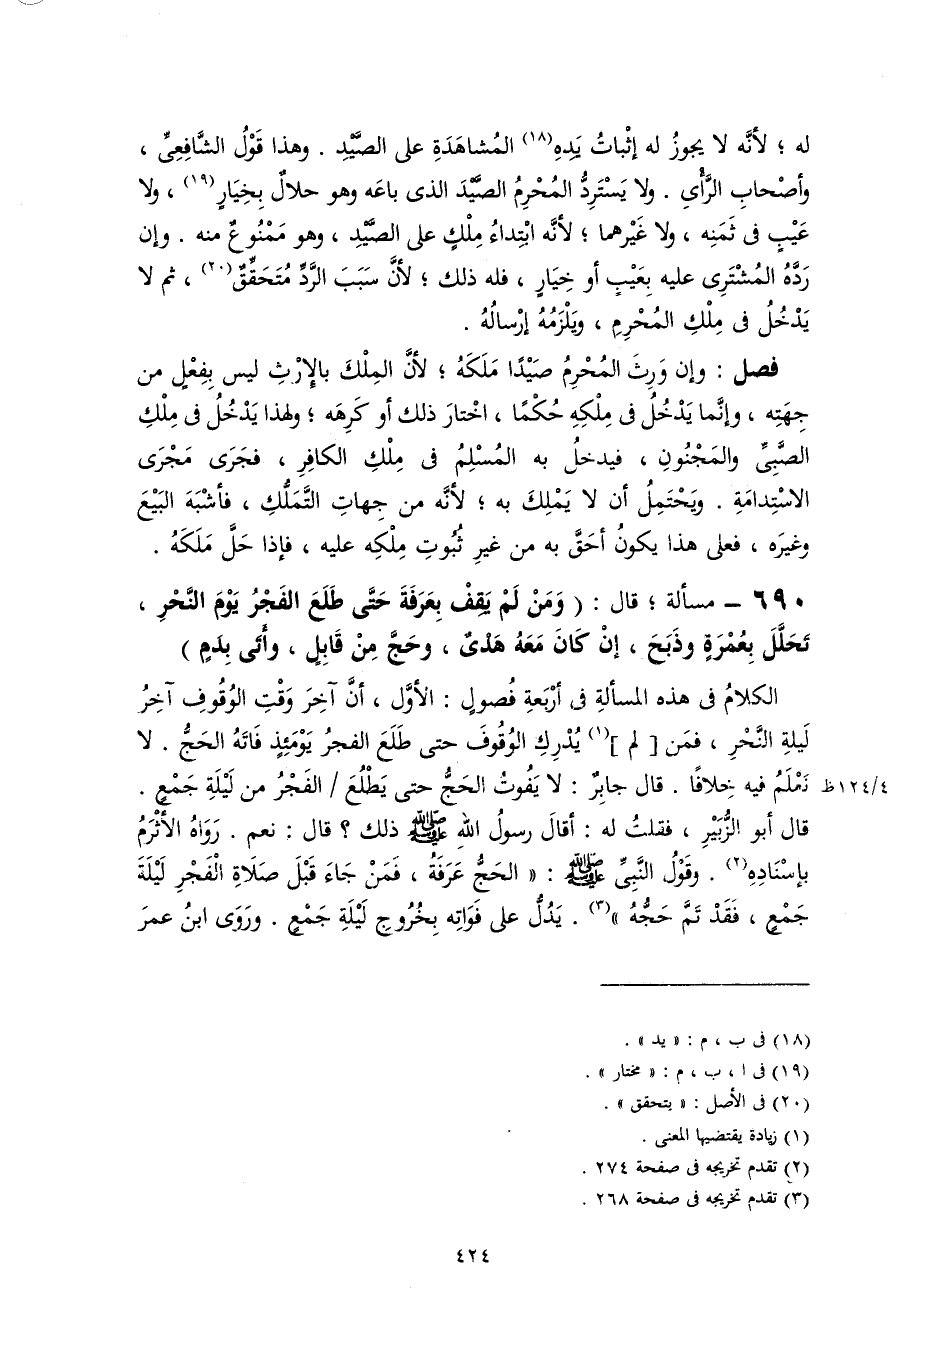 له ؛ لأنَّه لا يجوزُ له إثْباتُ يَدِهِ(١٨) المُشاهَدَةِ على الصَّيْدِ . وهذا قَوْلُ الشَّافِعِىِّ ،
وأصْحابِ الرَّأْىِ . ولا يَسْتَرِدُّ المُحْرِمُ الصَّيْدَ الذى باعَه وهو حلالٌ بِخِيَارٍ(١٩) ، ولا
عَيْبٍ فى ثَمَنِه ، ولا غَيْرِهما ؛ لأنَّه ابْتِداءُ مِلْكٍ على الصَّيْدِ ، وهو مَمْنُوعٌ منه . وإن
رَدَّهُ المُشْتَرِى عليه بِعَيْبٍ أو خِيَارٍ ، فله ذلك ؛ لأنَّ سَبَبَ الرَّدِّ مُتَحَقِّقٌ(٢٠) ، ثم لا
يَدْخُلُ فى مِلْكِ المُحْرِمِ ، ويَلْزَمُهُ إرْسالُهُ .
فصل : وإن وَرِثَ المُحْرِمُ صَيْدًا مَلَكَهُ ؛ لأنَّ المِلْكَ بالإِرْثِ ليس بِفِعْلٍ من
جِهَتِه ، وإنَّما يَدْخُلُ فى مِلْكِهِ حُكْمًا ، اخْتارَ ذلك أو كَرِهَه ؛ ولهذا يَدْخُلُ فى مِلْكِ
الصَّبِىِّ والمَجْنُونِ ، فيدخلُ به المُسْلِمُ فى مِلْكِ الكافِرِ ، فجَرَى مَجْرَى
الاسْتِدامَةِ . ويَحْتَمِلُ أن لا يَمْلِكَ به ؛ لأنَّه من جِهاتِ التَّمَلُّكِ ، فأشْبَهَ البَيْعَ
وغيرَه ، فعلى هذا يكونُ أحَقَّ به من غيرِ ثُبُوتِ مِلْكِه عليه ، فإذا حَلَّ مَلَكَهُ .
٦٩٠ – مسألة ؛ قال : ( وَمَنْ لَمْ يَقِفْ بِعَرَفَةَ حَتَّى طَلَعَ الفَجْرُ يَوْمَ النَّحْرِ ،
تَحَلَّلَ بِعُمْرَةٍ وذَبَحَ ، إنْ كَانَ مَعَهُ هَدْىٌ ، وحَجَّ مِنْ قَابِلٍ ، وأَتَى بِدَمٍ )
الكلامُ فى هذه المسألةِ فى أرْبَعةِ فُصولٍ : الأوَّل ، أنَّ آخِرَ وَقْتِ الوُقُوفِ آخِرُ
لَيلةِ النَّحْرِ ، فمَن [ لم ](١) يُدْرِكِ الوُقُوفَ حتى طَلَعَ الفجرُ يَوْمَئِذٍ فَاتَهُ الحَجُّ . لا
نَعْلَمُ فيه خِلافًا . قال جابِرٌ : لا يَفُوتُ الحَجُّ حتى يَطْلُعَ / الفَجْرُ من لَيْلَةِ جَمْعٍ . ١٢٤/٤ظ
قال أبو الزُّبَيْرِ ، فقلتُ له : أقالَ رسولُ اللهِ ﷺ ذلك ؟ قال : نعم . رَوَاهُ الأثْرَمُ
بإسْنَادِهِ(٢) . وقَوْلُ النَّبِىِّ ﷺ : « الحَجُّ عَرَفَةُ ، فَمَنْ جَاءَ قَبْلَ صَلَاةِ الْفَجْرِ لَيْلَةَ
جَمْعٍ ، فَقَدْ تَمَّ حَجُّهُ »(٣) . يَدُلُّ على فَوَاتِه بِخُرُوجِ لَيْلَةِ جَمْعٍ . ورَوَى ابنُ عمرَ
(١٨) فى ب ، م : « يد » .
(١٩) فى ا ، ب ، م : « مختار » .
(٢٠) فى الأصل : « يتحقق » .
(١) زيادة يقتضيها المعنى .
(٢) تقدم تخريجه فى صفحة ٢٧٤ .
(٣) تقدم تخريجه فى صفحة ٢٦٨ .
٤٢٤